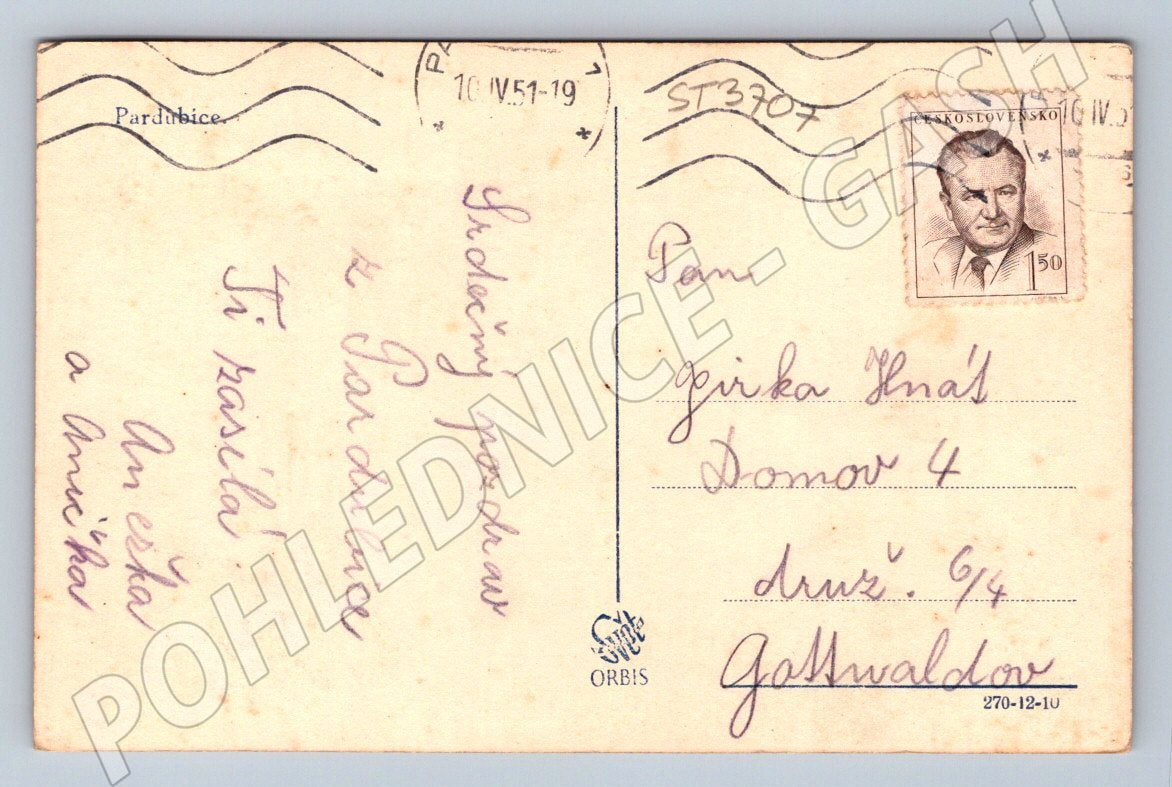 Pardubice.
10.IV.51-19
ST3707
ČESKOSLOVENSKO
1 50
10 IV.5
Srdečný pozdrav
z Pardubic
Ti zasílá
Anežka
a Anička
Pan
Jirka Hnát
Domov 4
druž. 6/4
Gottwaldov
Svět
ORBIS
270-12-10
POHLEDNICE - GASH